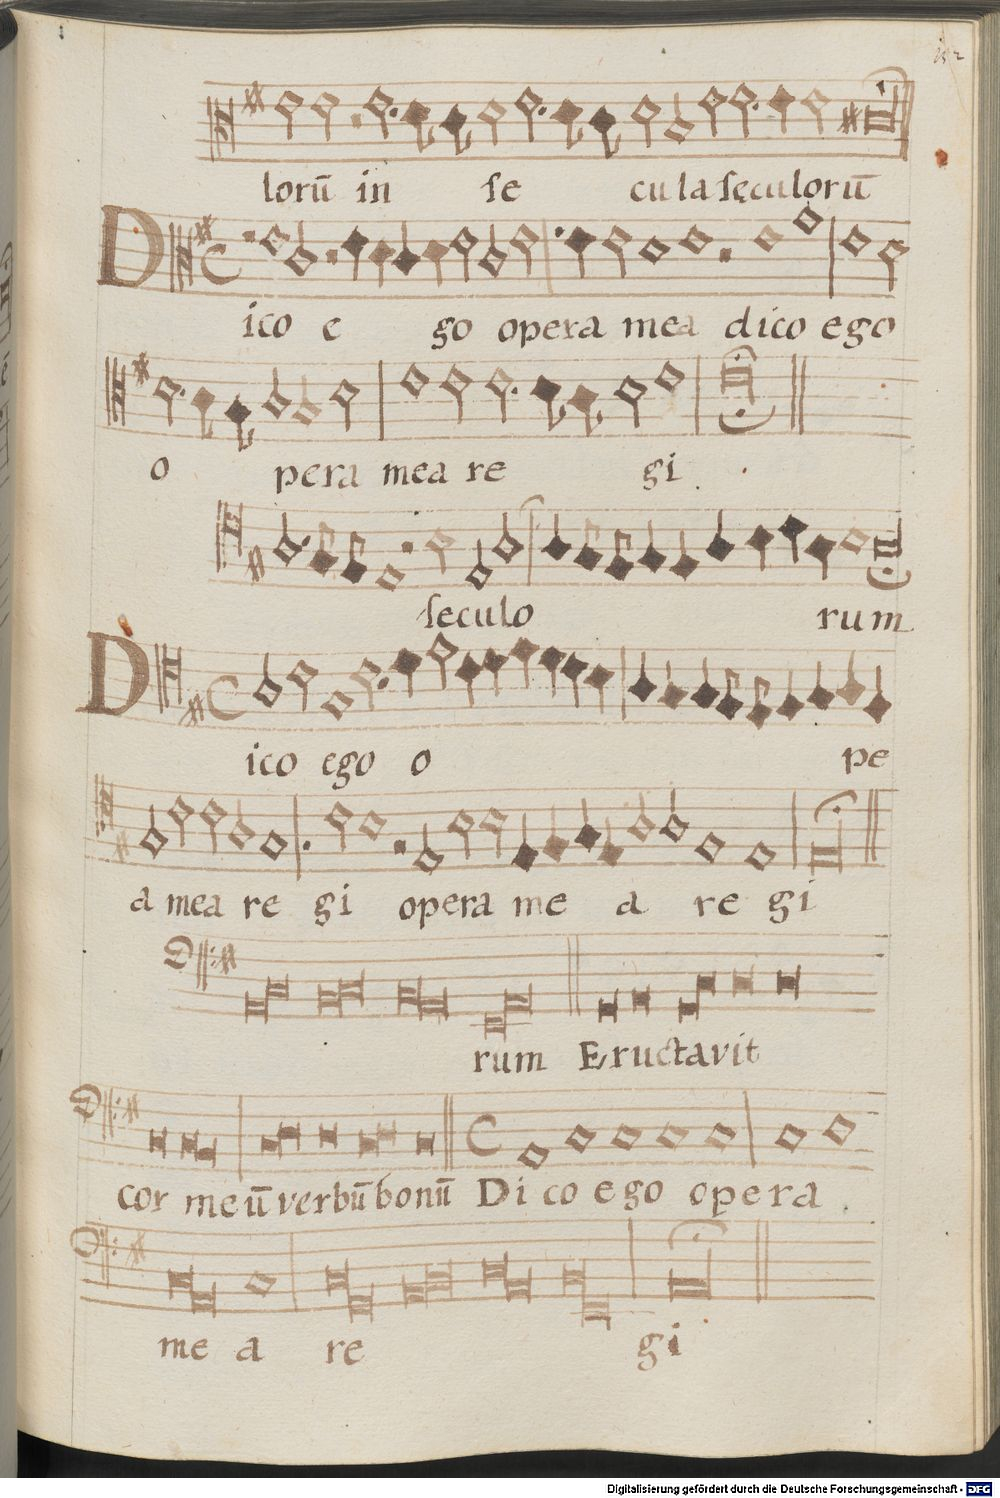 lorū in se cula sęculorū
Dico ego opera mea dico ego
o pera mea re gi
seculo rum
Dico ego o pe
a mea re gi opera me a re gi
rum Eructavit
cor meū verbū bonū Dico ego opera
me a re gi
Digitalisierung gefördert durch die Deutsche Forschungsgemeinschaft - DFG